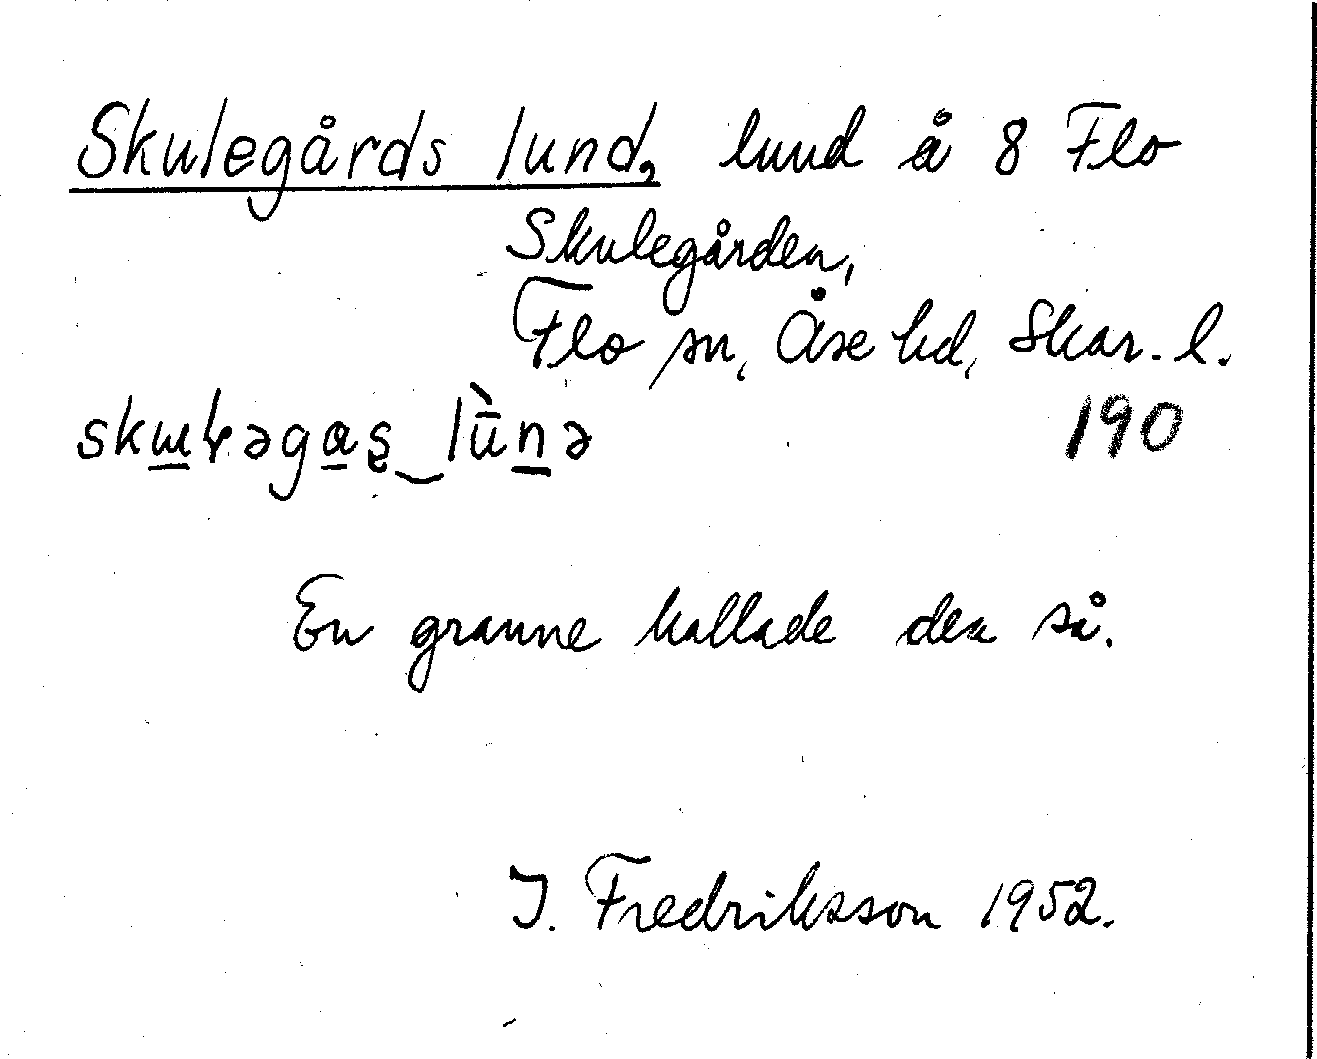 Skulegårds lund, lund å 8 Flo
Skulegården,
Flo sn, Åse hd, Skar. l.
skɯɽəgas̡‿lū̀nə 190
En granne kallade den så.
J. Fredriksson 1952.